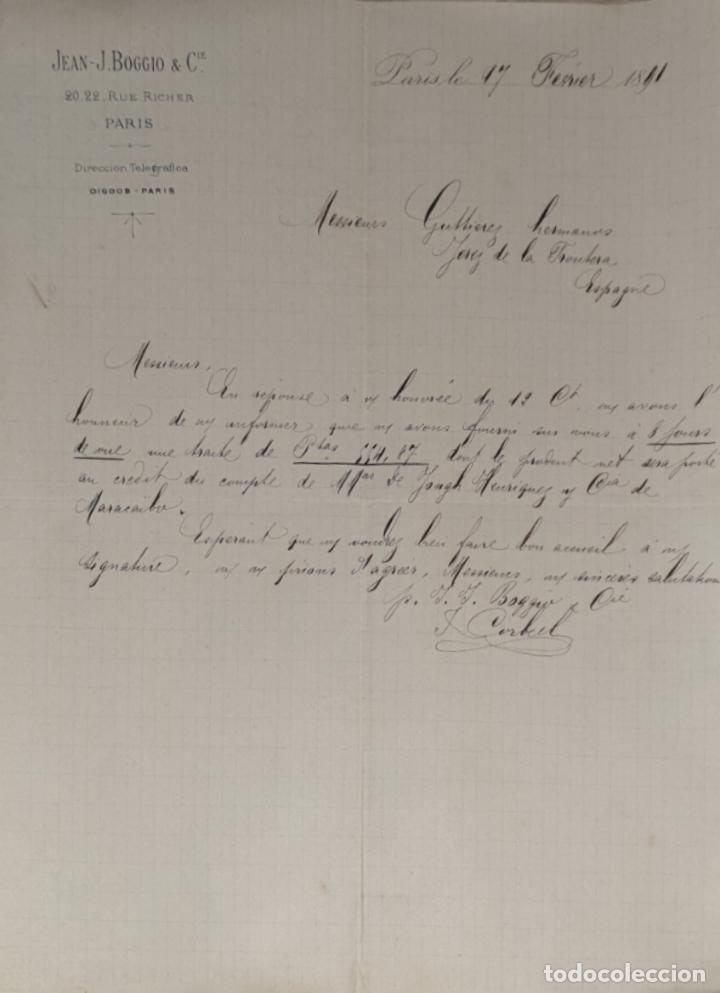 JEAN-J. BOGGIO & CIE.
20, 22, RUE RICHER
PARIS
Direccion Telegráfica
OIGGOB - PARIS
Paris, le 17 Février 1891
Messieurs Guttierez hermanos
Jerez de la Frontera
Espagne
Messieurs,
En réponse à v/ honorée du 12 Ct. n/ avons l'
honneur de v/ informer que n/ avons fourni sur vous à 8 jours
de vue une traite de Ptas 774,87 dont le produit net sera porté
au crédit du compte de MMrs De Jongh Henriquez y Cia de
Maracaibo.
Espérant que v/ voudrez bien faire bon accueil à n/
signature, n/ v/ prions d'agréer, Messieurs, n/ sincères salutations
p. J. J. Boggio & Cie
J. Corbeel
todocoleccion